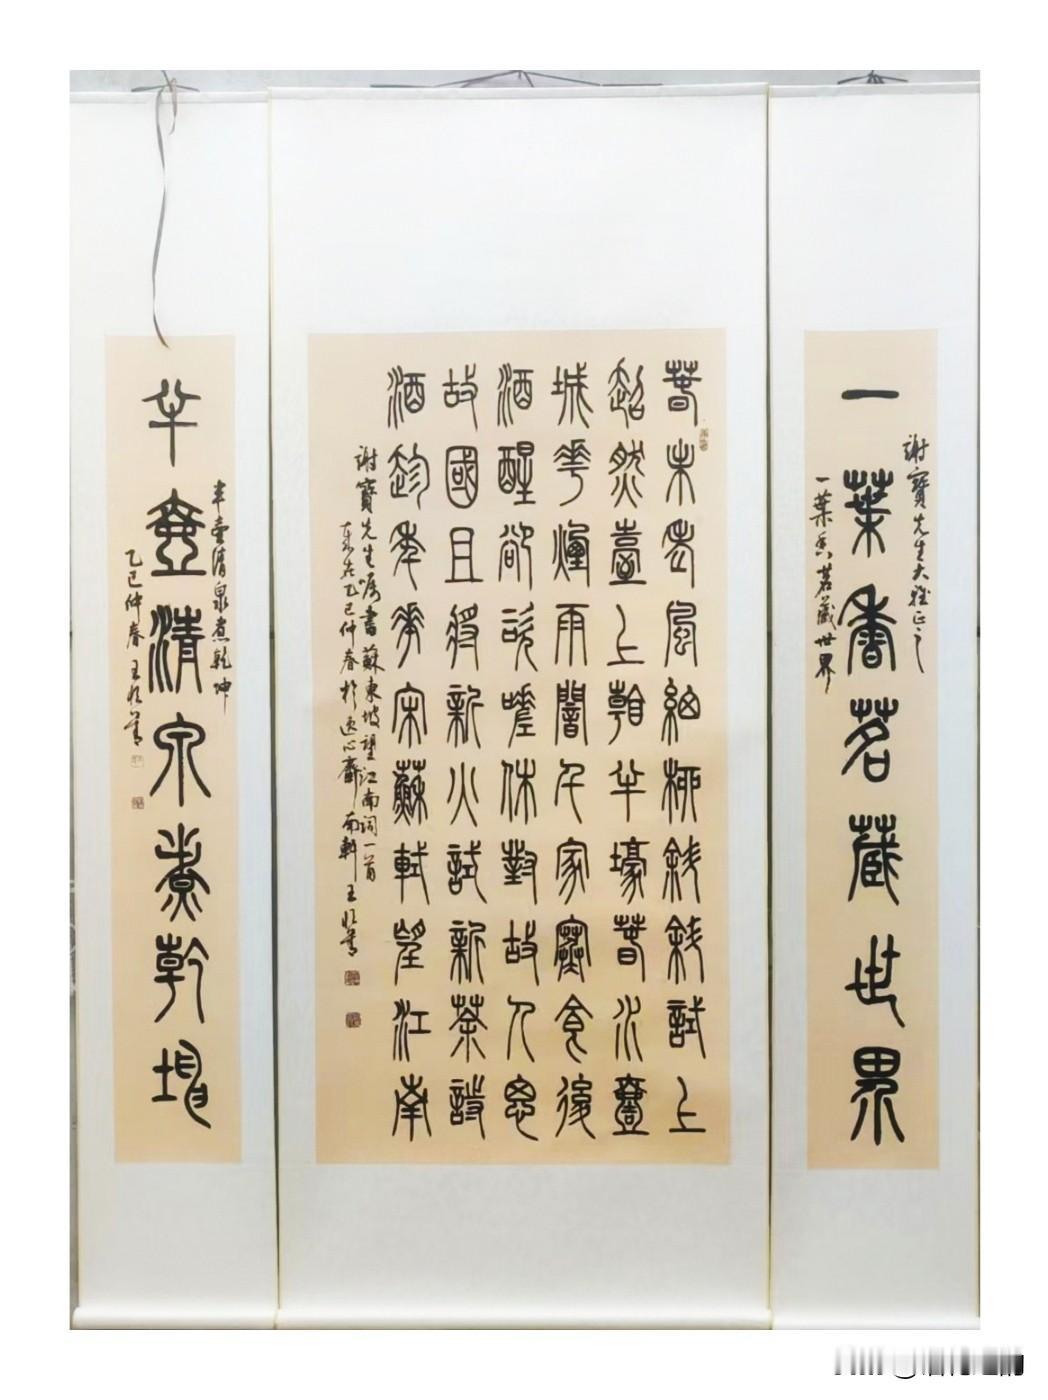 謝寶先生大雅正之
一葉香茗藏世界
一葉香茗藏世界
春未老風細柳斜斜試上
超然臺上看半壕春水壹
城花煙雨闇千家寒食後
酒醒卻咨嗟休對故人思
故國且將新火試新茶詩
酒趁年華宋蘇軾望江南
謝寶先生嘱書蘇東坡望江南詞一首
歲在乙巳仲春於心齋南軒王
半壺清泉煮乾坤
半壺清泉煮乾坤
乙巳仲春王